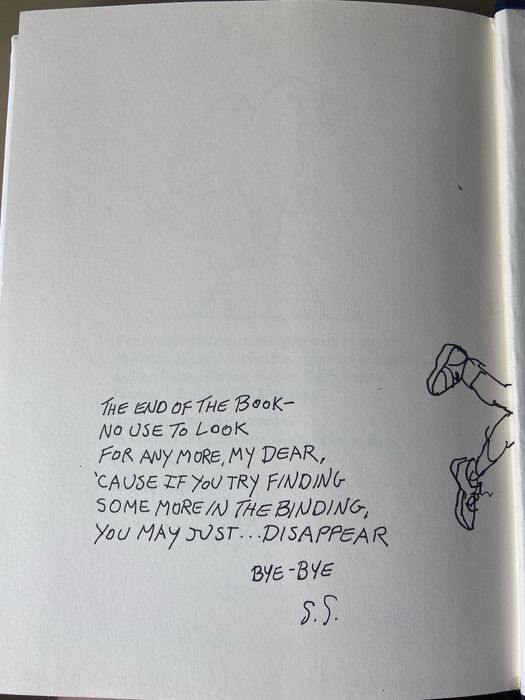 THE END OF THE BOOK-
NO USE TO LOOK
FOR ANY MORE, MY DEAR,
'CAUSE IF YOU TRY FINDING
SOME MORE IN THE BINDING,
YOU MAY JUST...DISAPPEAR
BYE-BYE
S.S.